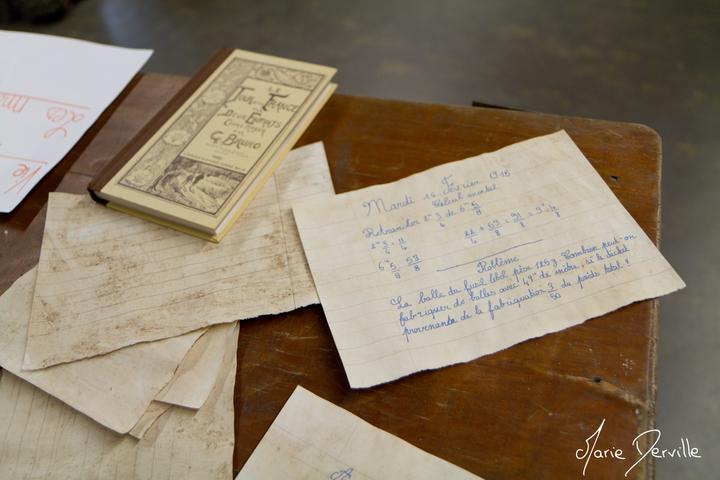 LE
TOUR DE LA FRANCE
PAR
DEUX ENFANTS
COURS MOYEN
PAR
G. BRUNO
Mardi 16 Février 1918
Calcul mental
Retrancher 2ᵐ 3/4 de 6ᵐ 5/8
2ᵐ 3/4 11/4
22/4 + 53/8 = 91/8 = 9ᵐ 4/8
6ᵐ 5/8 53/8
Problème
La balle du fusil lebel pèse 125g. Combien peut-on
fabriquer de balles avec 49ᵏ de métal, si le déchet
provenant de la fabrication 3/50 du poids total ?
les
Marie Derville